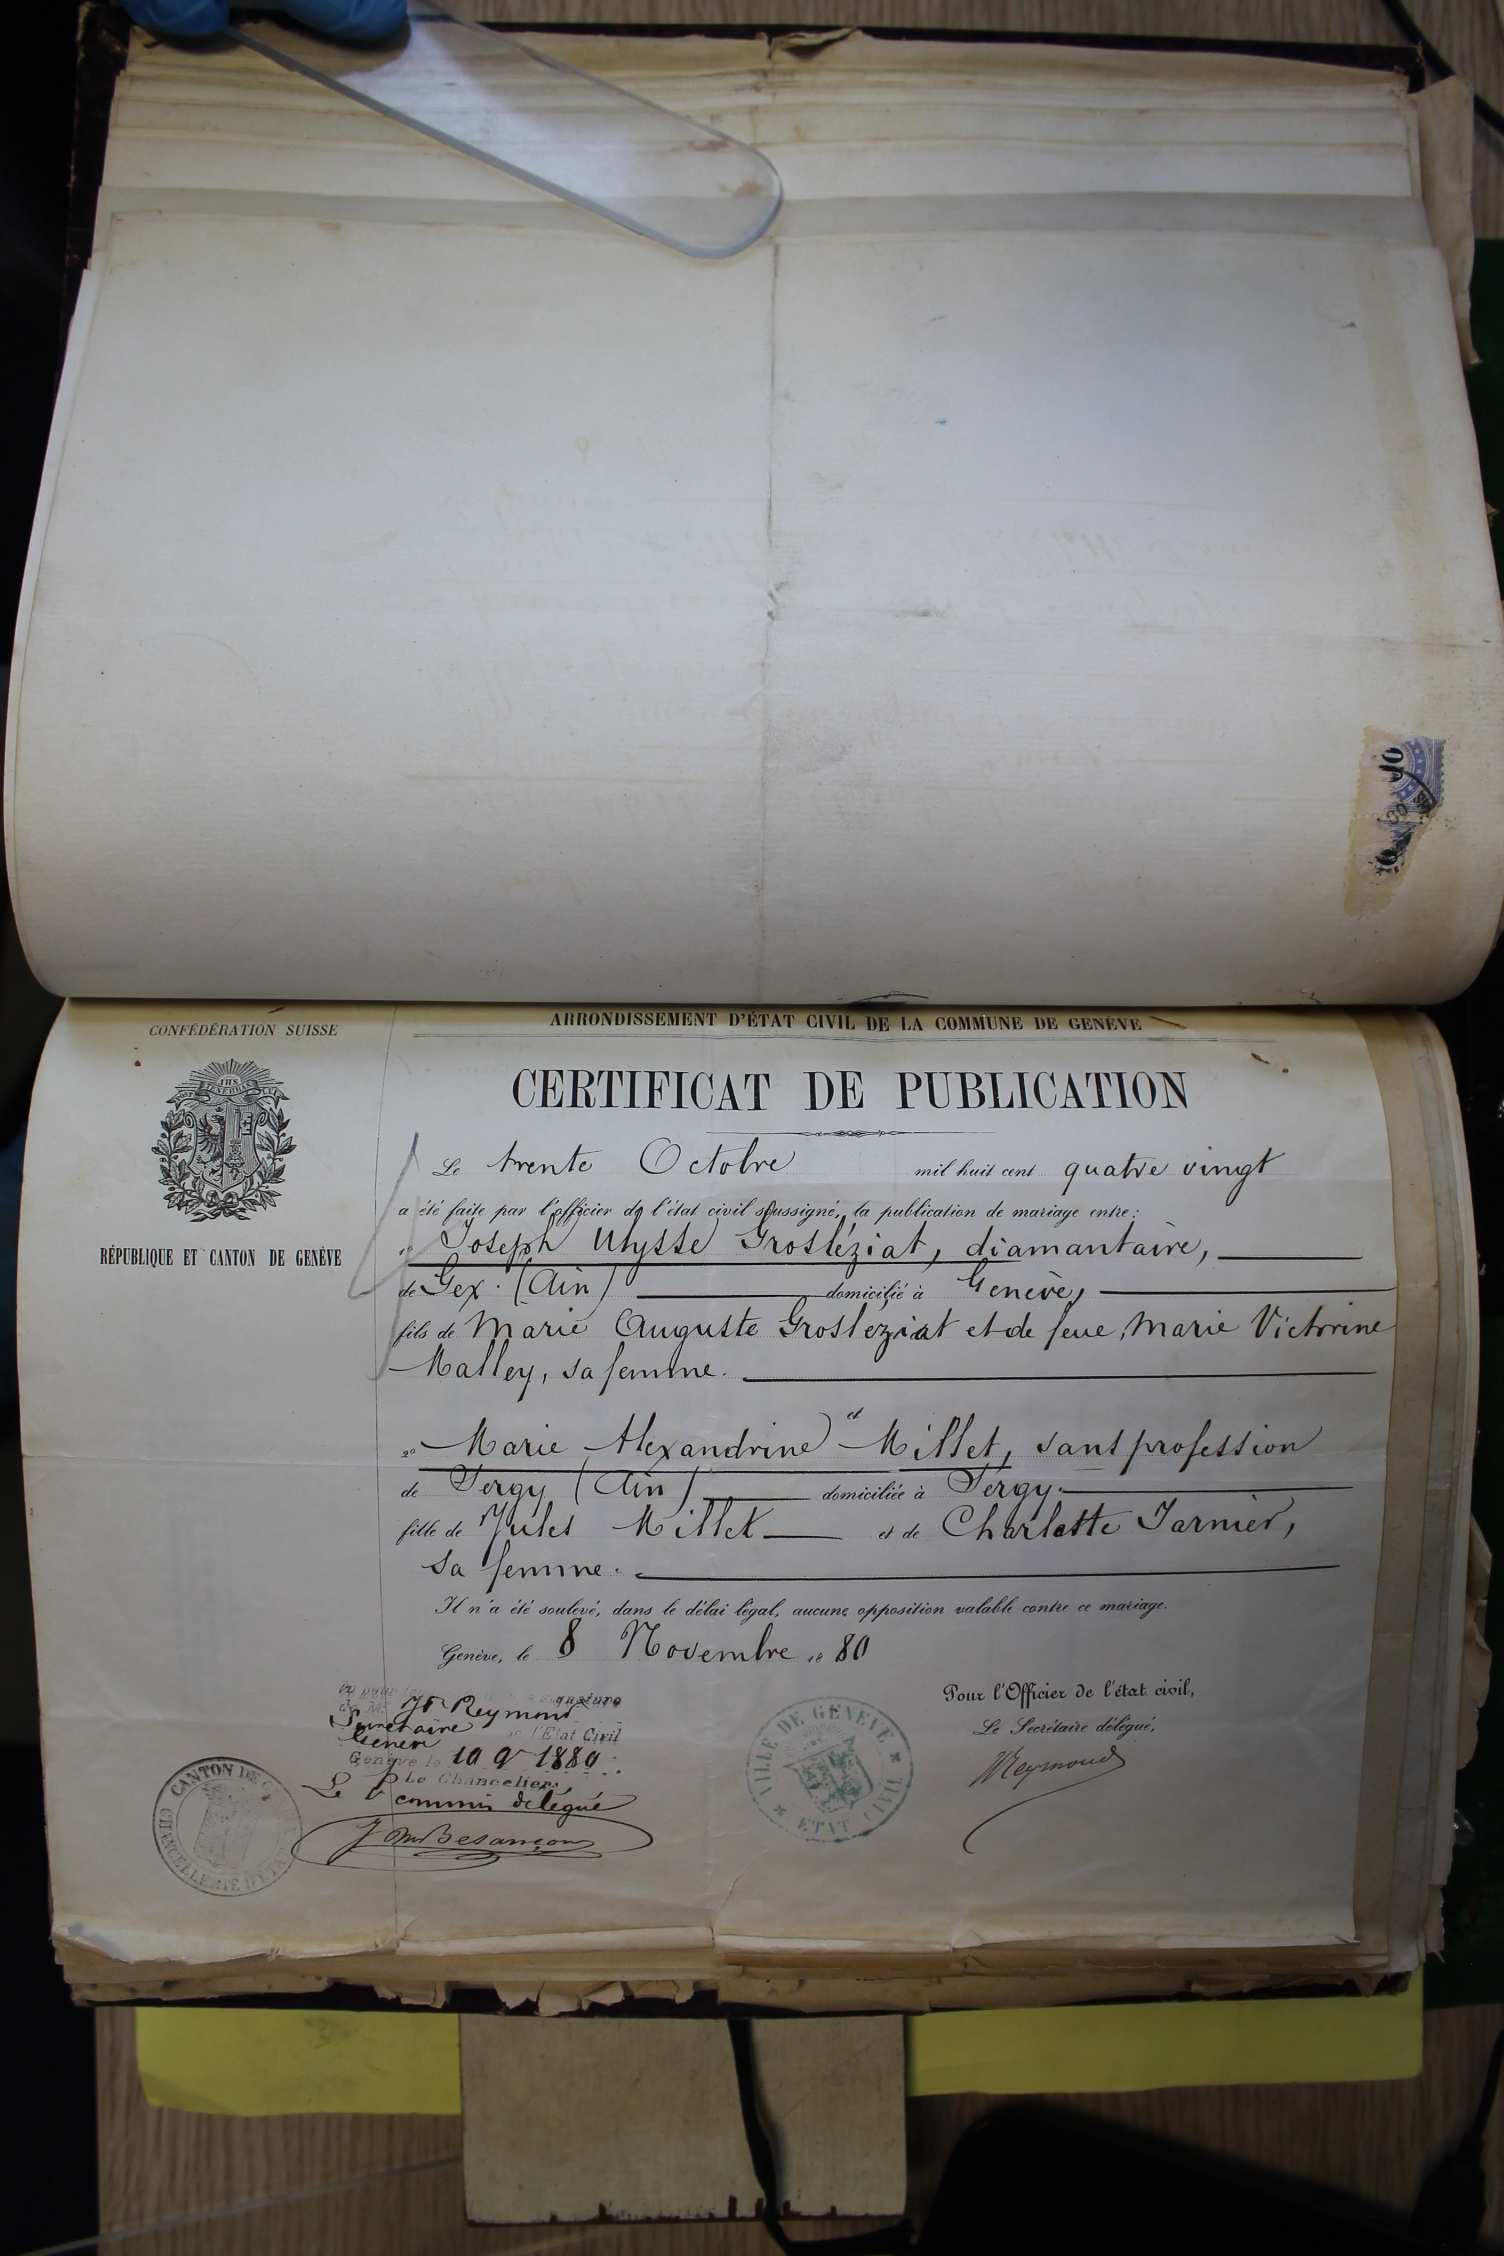 10
CONFÉDÉRATION SUISSE
RÉPUBLIQUE ET CANTON DE GENÈVE
ARRONDISSEMENT D'ÉTAT CIVIL DE LA COMMUNE DE GENÈVE
CERTIFICAT DE PUBLICATION
Le trente Octobre mil huit cent quatre vingt
a été faite par l'officier de l'état civil soussigné, la publication de mariage entre:
1º Joseph Ulysse Grosléziat, diamantaire,
de Gex. (Ain) domicilié à Genève,
fils de Marie Auguste Grosleziat et de feue, Marie Victorine
Malley, sa femme.
et
2º Marie Alexandrine Millet, sans profession
de Sergy (Ain) domiciliée à Sergy.
fille de Jules Millet et de Charlotte Jarnier,
sa femme.
Il n'a été soulevé, dans le délai légal, aucune opposition valable contre ce mariage.
Genève, le 8 Novembre 1880
Pour l'Officier de l'état civil,
Le Secrétaire délégué,
Reymond
signature
de M. Reymond
Secrétaire de l'Etat Civil
Genève
Genève le 10 9r 1880
Le Chancelier,
Le commis délégué
Besançon
CANTON DE GENÈVE
CHANCELLERIE D'ETAT
VILLE DE GENÈVE
ETAT CIVIL